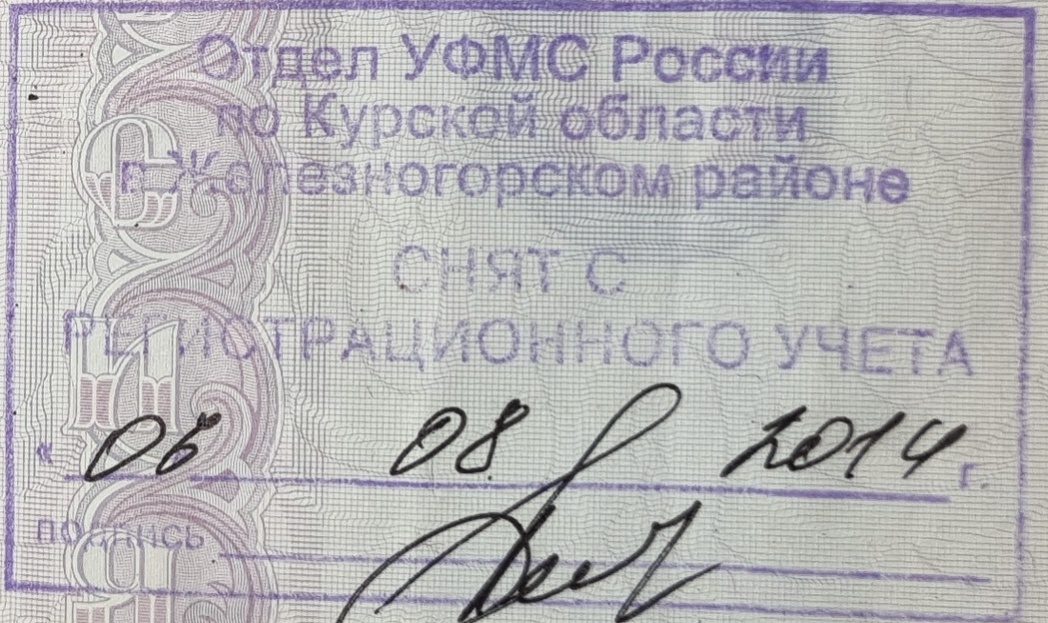 Отдел УФМС России
по Курской области
в Железногорском районе
СНЯТ С
РЕГИСТРАЦИОННОГО УЧЕТА
« 06 08 2014 г.
подпись